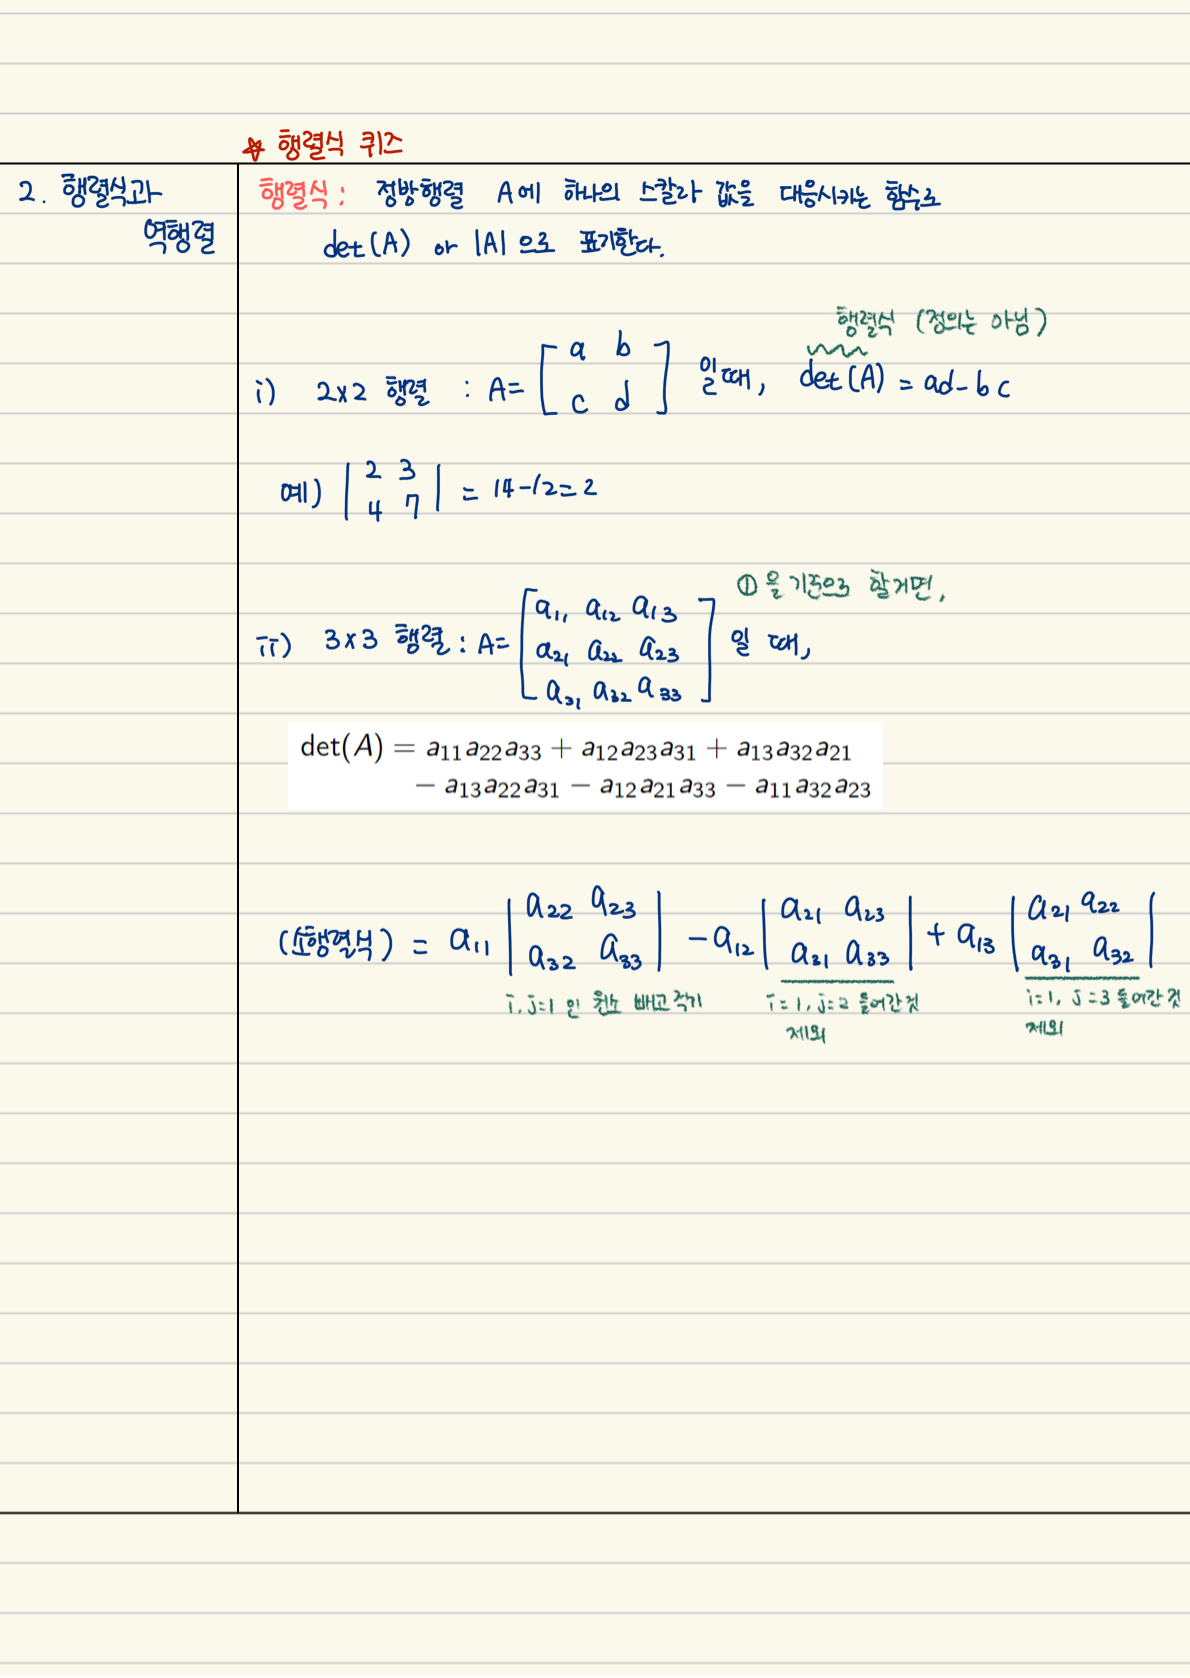 ☆ 행렬식 퀴즈
2. 행렬식과
역행렬
행렬식 : 정방행렬 A에 하나의 스칼라 값을 대응시키는 함수로
det(A) or |A| 으로 표기한다.
행렬식 (정의는 아님)
i) 2x2 행렬 : A= [a b
c d] 일때, det(A) = ad-bc
예) |2 3
4 7| = 14-12=2
① 을 기준으로 할거면,
ii) 3x3 행렬 : A= [a₁₁ a₁₂ a₁₃
a₂₁ a₂₂ a₂₃
a₃₁ a₃₂ a₃₃] 일 때,
det(A) = a₁₁a₂₂a₃₃ + a₁₂a₂₃a₃₁ + a₁₃a₃₂a₂₁
− a₁₃a₂₂a₃₁ − a₁₂a₂₁a₃₃ − a₁₁a₃₂a₂₃
(소행렬식) = a₁₁ |a₂₂ a₂₃
a₃₂ a₃₃| -a₁₂ |a₂₁ a₂₃
a₃₁ a₃₃| + a₁₃ |a₂₁ a₂₂
a₃₁ a₃₂|
i, j=1 인 원소 빼고 적기
i=1, j=2 들어간것
제외
i=1, j=3 들어간 것
제외